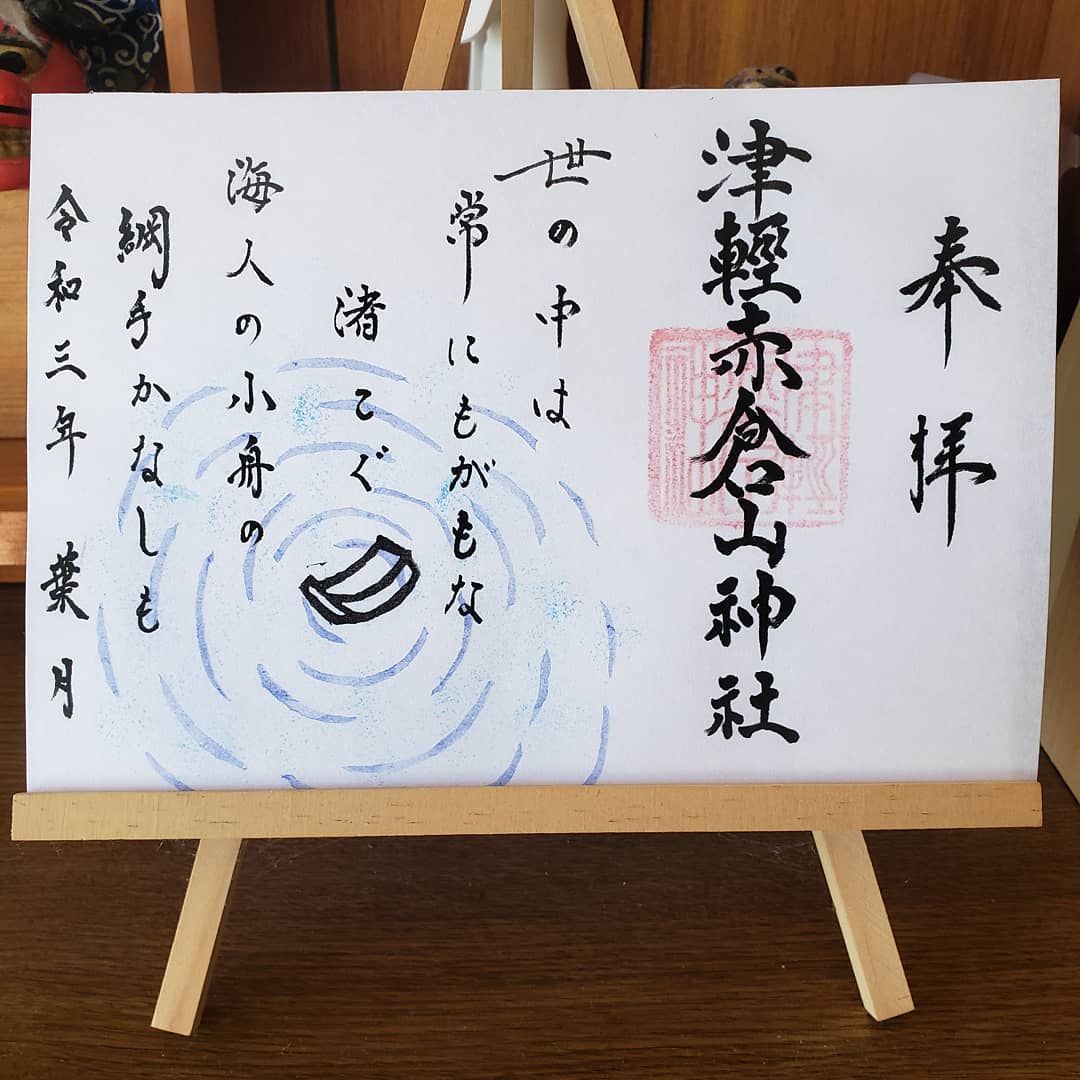 奉拝
津輕赤倉山神社
世の中は
常にもがもな
渚こぐ
海人の小舟の
綱手かなしも
令和三年 葉月